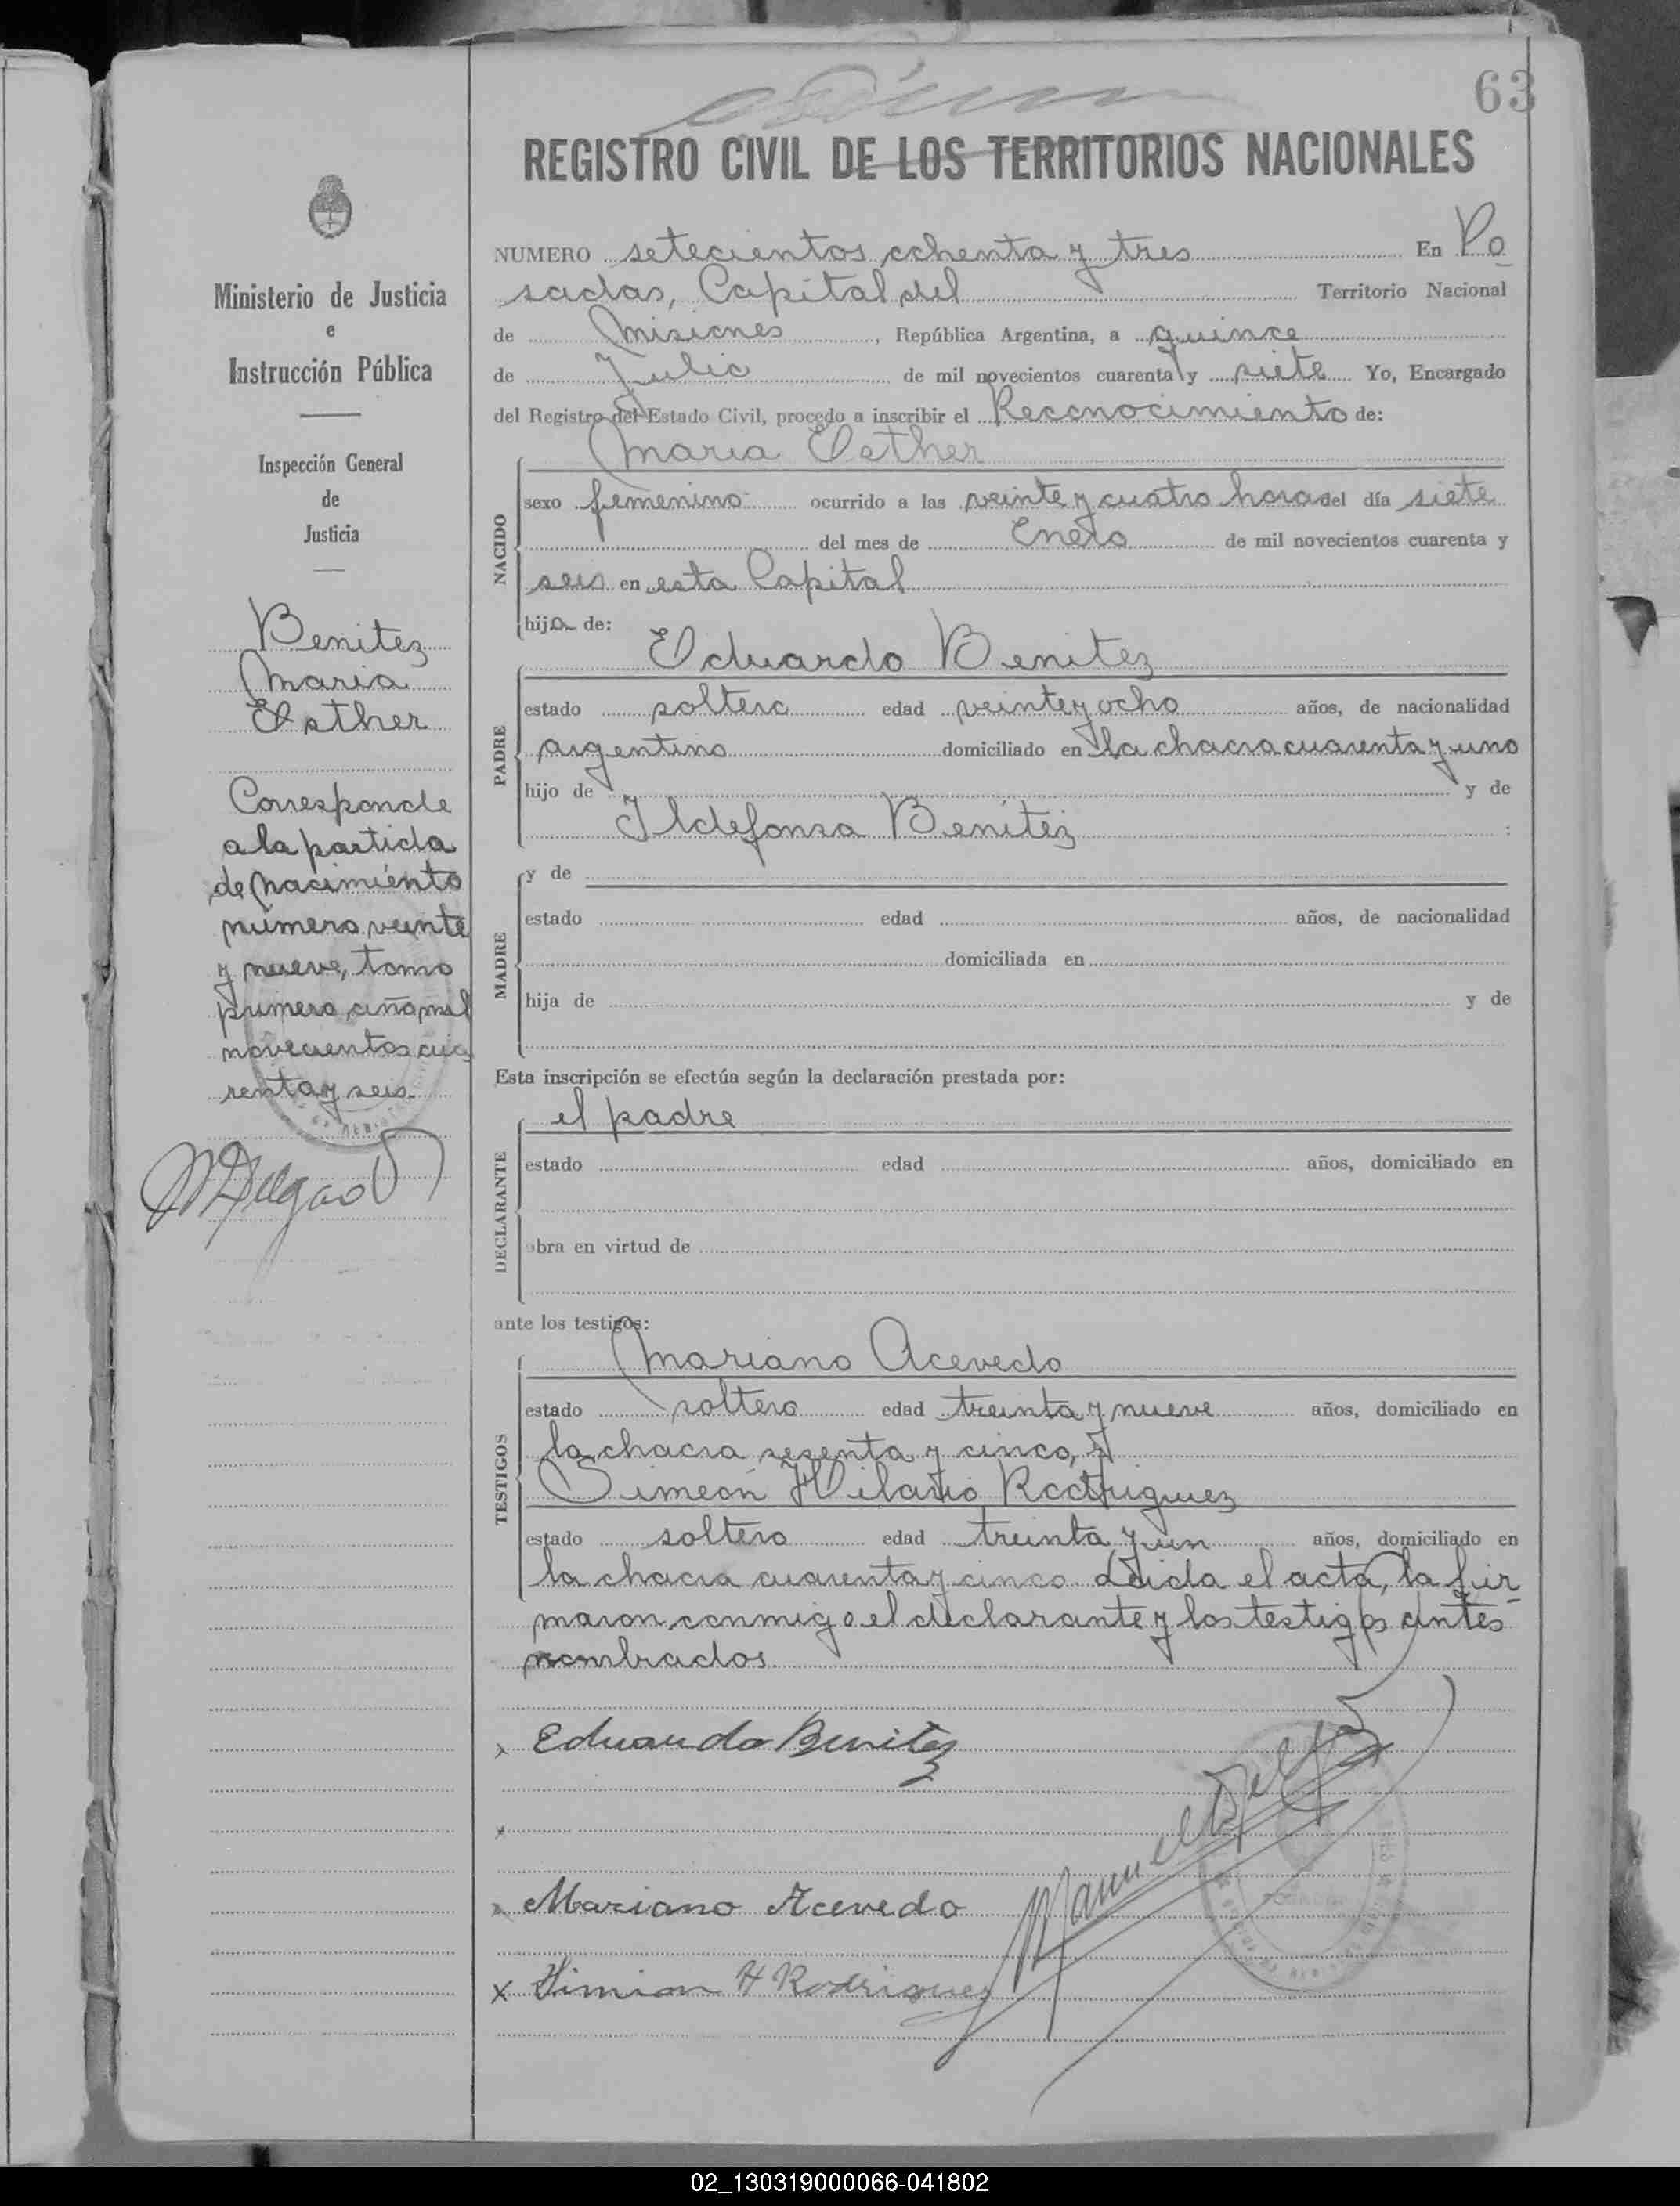 63
REGISTRO CIVIL DE LOS TERRITORIOS NACIONALES
Ministerio de Justicia
e
Instrucción Pública
Inspección General
de
Justicia
Benitez
Maria
Esther
Corresponde
a la partida
de nacimiento
número veinte
y nueve, tomo
primero, año mil
novecientos cua
renta y seis.
NUMERO setecientos ochenta y tres En Po
sadas, Capital del Territorio Nacional
de Misiones, República Argentina, a quince
de Julio de mil novecientos cuarenta y siete Yo, Encargado
del Registro del Estado Civil, procedo a inscribir el Reconocimiento de:
Maria Esther
NACIDO
sexo femenino ocurrido a las veinte y cuatro horas del día siete
del mes de Enero de mil novecientos cuarenta y
seis en esta Capital
hija de:
Eduardo Benitez
PADRE
estado soltero edad veinte y ocho años, de nacionalidad
argentino domiciliado en la chacra cuarenta y uno
hijo de y de
Ildefonsa Benítez
MADRE
y de
estado edad años, de nacionalidad
domiciliada en
hija de y de
Esta inscripción se efectúa según la declaración prestada por:
el padre
DECLARANTE
estado edad años, domiciliado en
obra en virtud de
ante los testigos:
Mariano Acevedo
TESTIGOS
estado soltero edad treinta y nueve años, domiciliado en
la chacra sesenta y cinco, y
Simeón Hilario Rodriguez
estado soltero edad treinta y un años, domiciliado en
la chacra cuarenta y cinco. Leida el acta, la fir
maron conmigo el declarante y los testigos antes
nombrados
x Eduardo Benitez
x
x Mariano Acevedo
x Simion H Rodriguez
02_130319000066-041802